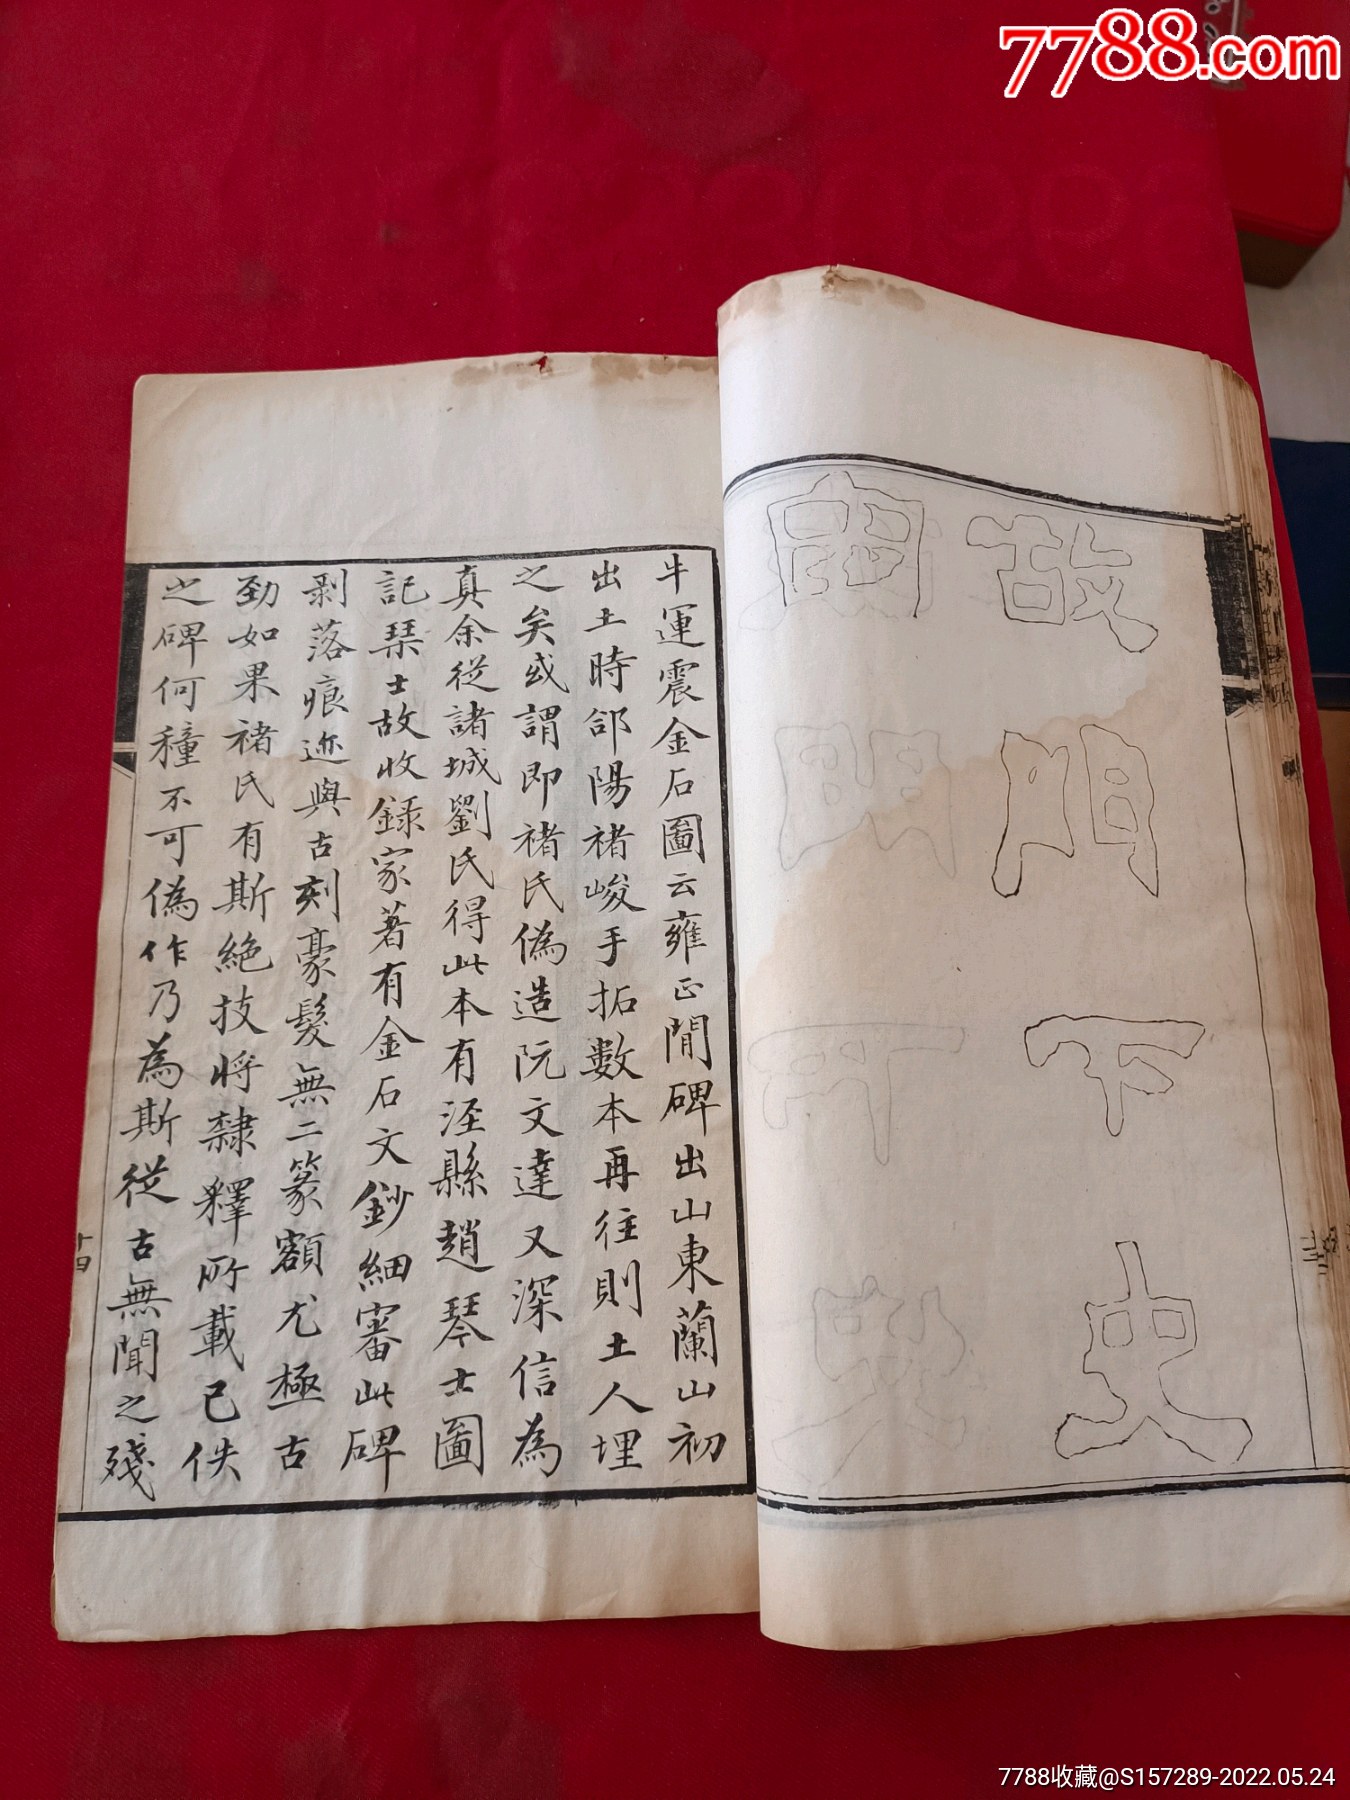 7788.com
故門下史
牛運震金石圖云雍正閒碑出山東蘭山初
出土時郃陽褚峻手拓數本再往則土人埋
之矣或謂即褚氏偽造阮文達又深信為
真余從諸城劉氏得此本有涇縣趙琴士圖
記琹士故收録家著有金石文鈔細審此碑
剥落痕迹與古刻豪髮無二篆額尤極古
勁如果褚氏有斯絶技將隸釋所載已佚
之碑何種不可偽作乃為斯從古無聞之殘
十四
7788收藏@S157289-2022.05.24